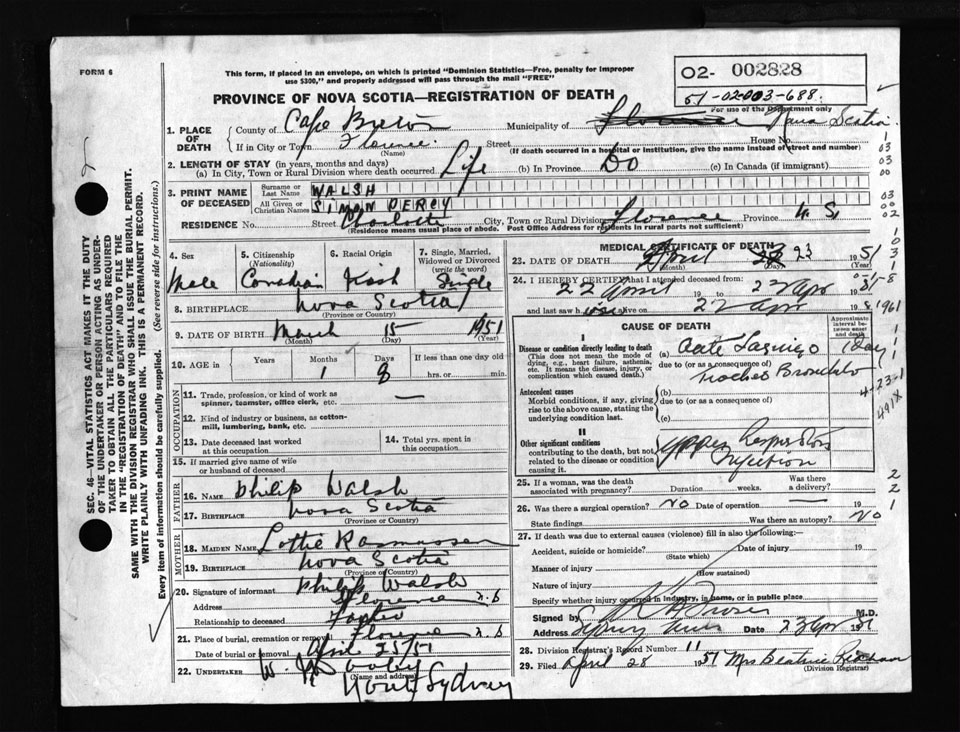 FORM 6
This form, if placed in an envelope, on which is printed "Dominion Statistics—Free, penalty for improper
use $300," and properly addressed will pass through the mail "FREE"
O2- 002828
51-02-003-688.
For use of the Department only
PROVINCE OF NOVA SCOTIA—REGISTRATION OF DEATH
1. PLACE OF DEATH
County of Cape Breton
Municipality of Florence Nova Scotia
If in City or Town Florence.
(Name)
Street
House No.
(If death occurred in a hospital or institution, give the name instead of street and number)
2. LENGTH OF STAY (in years, months and days)
(a) In City, Town or Rural Division where death occurred Life
(b) In Province Do
(c) In Canada (if immigrant)
3. PRINT NAME OF DECEASED
Surname or Last Name WALSH
All Given or Christian Names SIMON PERCY
RESIDENCE No. Street Charlotte City, Town or Rural Division Florence Province N.S.
(Residence means usual place of abode. Post Office Address for residents in rural parts not sufficient)
4. Sex
Male
5. Citizenship
(Nationality)
Canadian
6. Racial Origin
7. Single, Married,
Widowed or Divorced
(write the word)
Single
8. BIRTHPLACE Nova Scotia
(Province or Country)
9. DATE OF BIRTH March 15 1951
(Month) (Day) (Year)
10. AGE
Years Months Days If less than one day old
1 8 hrs. or min.
OCCUPATION
11. Trade, profession, or kind of work as
spinner, teamster, office clerk, etc. —
12. Kind of industry or business, as cotton-
mill, lumbering, bank, etc.
13. Date deceased last worked
at this occupation
14. Total yrs. spent in
this occupation
15. If married give name of wife
or husband of deceased
FATHER
16. Name Philip Walsh
17. Birthplace Nova Scotia
(Province or Country)
MOTHER
18. Maiden Name Lottie Rasmussen
19. Birthplace Nova Scotia
(Province or Country)
20. Signature of informant Philip Walsh
Address Florence
Relationship to deceased Father
21. Place of burial, cremation or removal Florence
Date of burial or removal April 25/51
22. UNDERTAKER
(Name and address)
North Sydney
MEDICAL CERTIFICATE OF DEATH
23. DATE OF DEATH April 23 1951
(Month) (Day) (Year)
24. I HEREBY CERTIFY that I attended deceased from:
22 April 19 to 23 Apr 1951
and last saw h alive on 22 Apr 19
CAUSE OF DEATH
Approximate
interval be-
tween onset
and death
I
Disease or condition directly leading to death
(This does not mean the mode of
dying, e.g., heart failure, asthenia,
etc. It means the disease, injury, or
complication which caused death.)
(a)
1 Day
due to (or as a consequence of)
Antecedent causes
Morbid conditions, if any, giving
rise to the above cause, stating the
underlying condition last.
(b)
due to (or as a consequence of)
(c)
II
Other significant conditions
contributing to the death, but not
related to the disease or condition
causing it.
Upper Respiratory
Infection
25. If a woman, was the death
associated with pregnancy? Duration weeks. Was there
a delivery?
26. Was there a surgical operation? No Date of operation — 19
State findings Was there an autopsy? No
27. If death was due to external causes (violence) fill in also the following:
Accident, suicide or homicide? Date of injury 19
(State which)
Manner of injury
(How sustained)
Nature of injury
Specify whether injury occurred in industry, in home, or in public place
Signed by M.D.
Address Sydney Mines Date 23 Apr 1951
28. Division Registrar's Record Number 11
29. Filed April 28 1951 Mrs Beatrice
(Division Registrar)
SEC. 46—VITAL STATISTICS ACT MAKES IT THE DUTY
OF THE UNDERTAKER OR PERSON ACTING AS UNDER-
TAKER TO OBTAIN ALL THE PARTICULARS REQUIRED
IN THE "REGISTRATION OF DEATH" AND TO FILE THE
SAME WITH THE DIVISION REGISTRAR WHO SHALL ISSUE THE BURIAL PERMIT.
WRITE PLAINLY WITH UNFADING INK. THIS IS A PERMANENT RECORD.
Every item of information should be carefully supplied. (See reverse side for instructions.)